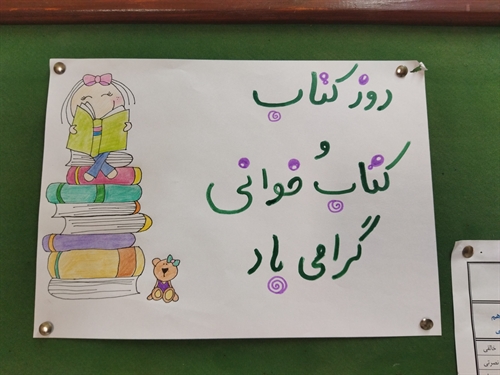 روز کتاب
و
کتاب خوانی
گرامی باد